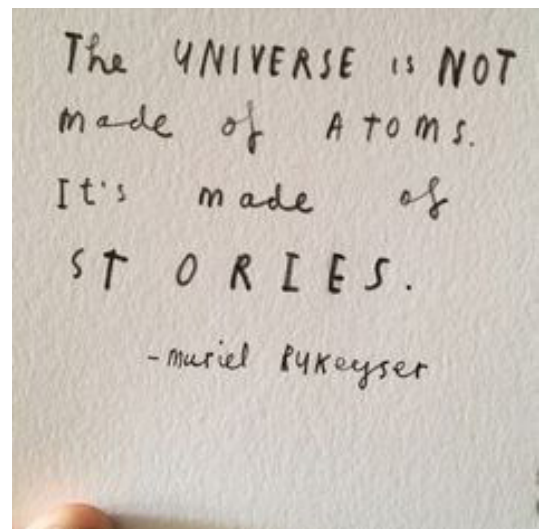 The UNIVERSE is NOT
made of ATOMS.
It's made of
STORIES.
-muriel Rukeyser